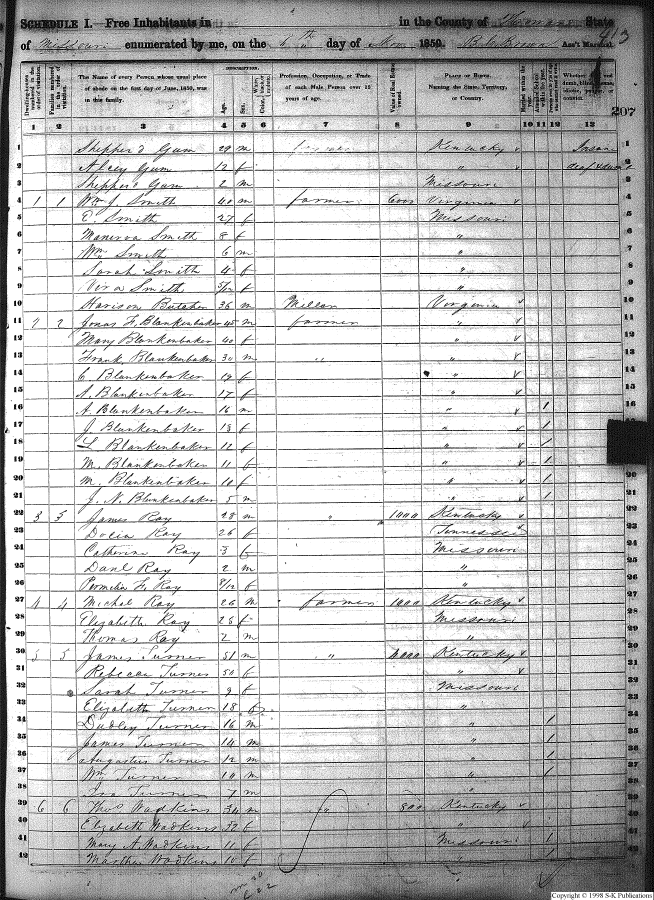 SCHEDULE I.—Free Inhabitants in in the County of State
of Missouri enumerated by me, on the 6th day of Nov 1850. Ass't Marshal.
413
207
Dwelling-houses numbered in the order of visitation.
Families numbered in the order of visitation.
The Name of every Person whose usual place of abode on the first day of June, 1850, was in this family.
DESCRIPTION.
Age.
Sex.
Color,
Profession, Occupation, or Trade of each Male Person over 15 years of age.
Value of Real Estate owned.
PLACE OF BIRTH. Naming the State, Territory, or Country.
Married within the year.
Whether deaf and dumb, blind, insane, idiotic, pauper, or convict.
1 2 3 4 5 6 7 8 9 10 11 12 13
1 Shepperd Gum 29 m farmer Kentucky Insane 1
2 Alcey Gum 12 f " deaf & dumb 2
3 Shepperd Gum 2 m Missouri 3
4 1 1 Wm J. Smith 40 m farmer 6000 Virginia 4
5 E. Smith 27 f Missouri 5
6 Manerva Smith 8 f " 6
7 Wm Smith 6 m " 7
8 Sarah Smith 4 f " 8
9 Vira Smith 5/12 f " 9
10 Harison Butcher 36 m Miller Virginia 10
11 2 2 Jonas F. Blankenbaker 45 m farmer " 11
12 Mary Blankenbaker 40 f " 12
13 Frank Blankenbaker 30 m " " 13
14 C. Blankenbaker 19 f " 14
15 A. Blankenbaker 17 f " 15
16 A. Blankenbaker 16 m " 1 16
17 J. Blankenbaker 13 f " 1 17
18 L. Blankenbaker 12 f " 1 18
19 M. Blankenbaker 11 f " 1 19
20 M. Blankenbaker 10 f " 1 20
21 J. N. Blankenbaker 5 m " 1 21
22 3 3 James Ray 28 m " 1000 Kentucky 22
23 Docia Ray 26 f Tennessee 23
24 Catherine Ray 3 f Missouri 24
25 Danl Ray 2 m " 25
26 Permelia F. Ray 8/12 f " 26
27 4 4 Michal Ray 26 m farmer 1000 Kentucky 27
28 Elizabeth Ray 25 f Missouri 28
29 Thomas Ray 2 m " 29
30 5 5 James Turner 51 m " Kentucky 30
31 Rebecca Turner 50 f " 31
32 Sarah Turner 9 f Missouri 32
33 Elizabeth Turner 18 f " 33
34 Dudley Turner 16 m " 1 34
35 James Turner 14 m " 1 35
36 Augustus Turner 12 m " 1 36
37 Wm Turner 10 m " 1 37
38 Ira Turner 7 m " 38
39 6 6 Thos Wadkins 34 m " 800 Kentucky 39
40 Elizabeth Wadkins 32 f " 40
41 Mary A. Wadkins 11 f Missouri 1 41
42 Marthes Wadkins 10 f " 1 42
Copyright © 1998 S-K Publications